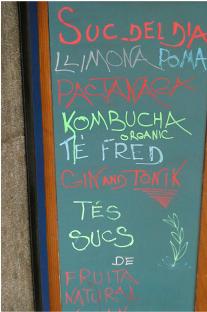 SUC DEL DIA
LLIMONA POMA
PASTANAGA
KOMBUCHA
ORGANIC
TÈ FRED
GIN AND TONIK
TÉS
SUCS
DE
FRUITA
NATURAL